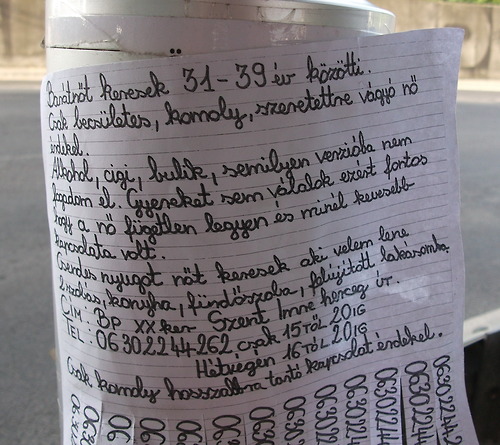 Barátnőt keresek 31-39 év közötti.
Csak becsületes, komoly, szeretettre vágyó nő
érdekel.
Alkohol, cigi, bulik, semilyen verzióba nem
fogadom el. Gyereket sem válalok ezért fontos
hogy a nő független legyen és minél kevesebb
kapcsolata volt.
Csendes nyugot nőt keresek aki velem lene
1 szobás, konyha, fürdőszoba, felújított lakásomba.
CÍM: BP XX ker Szent Imre herceg út.
TEL: 06302244262 csak 15TŐL 20IG
Hétvégen 16TŐL 20IG
Csak komoly hosszabbra tartó kapcsolat érdekel.